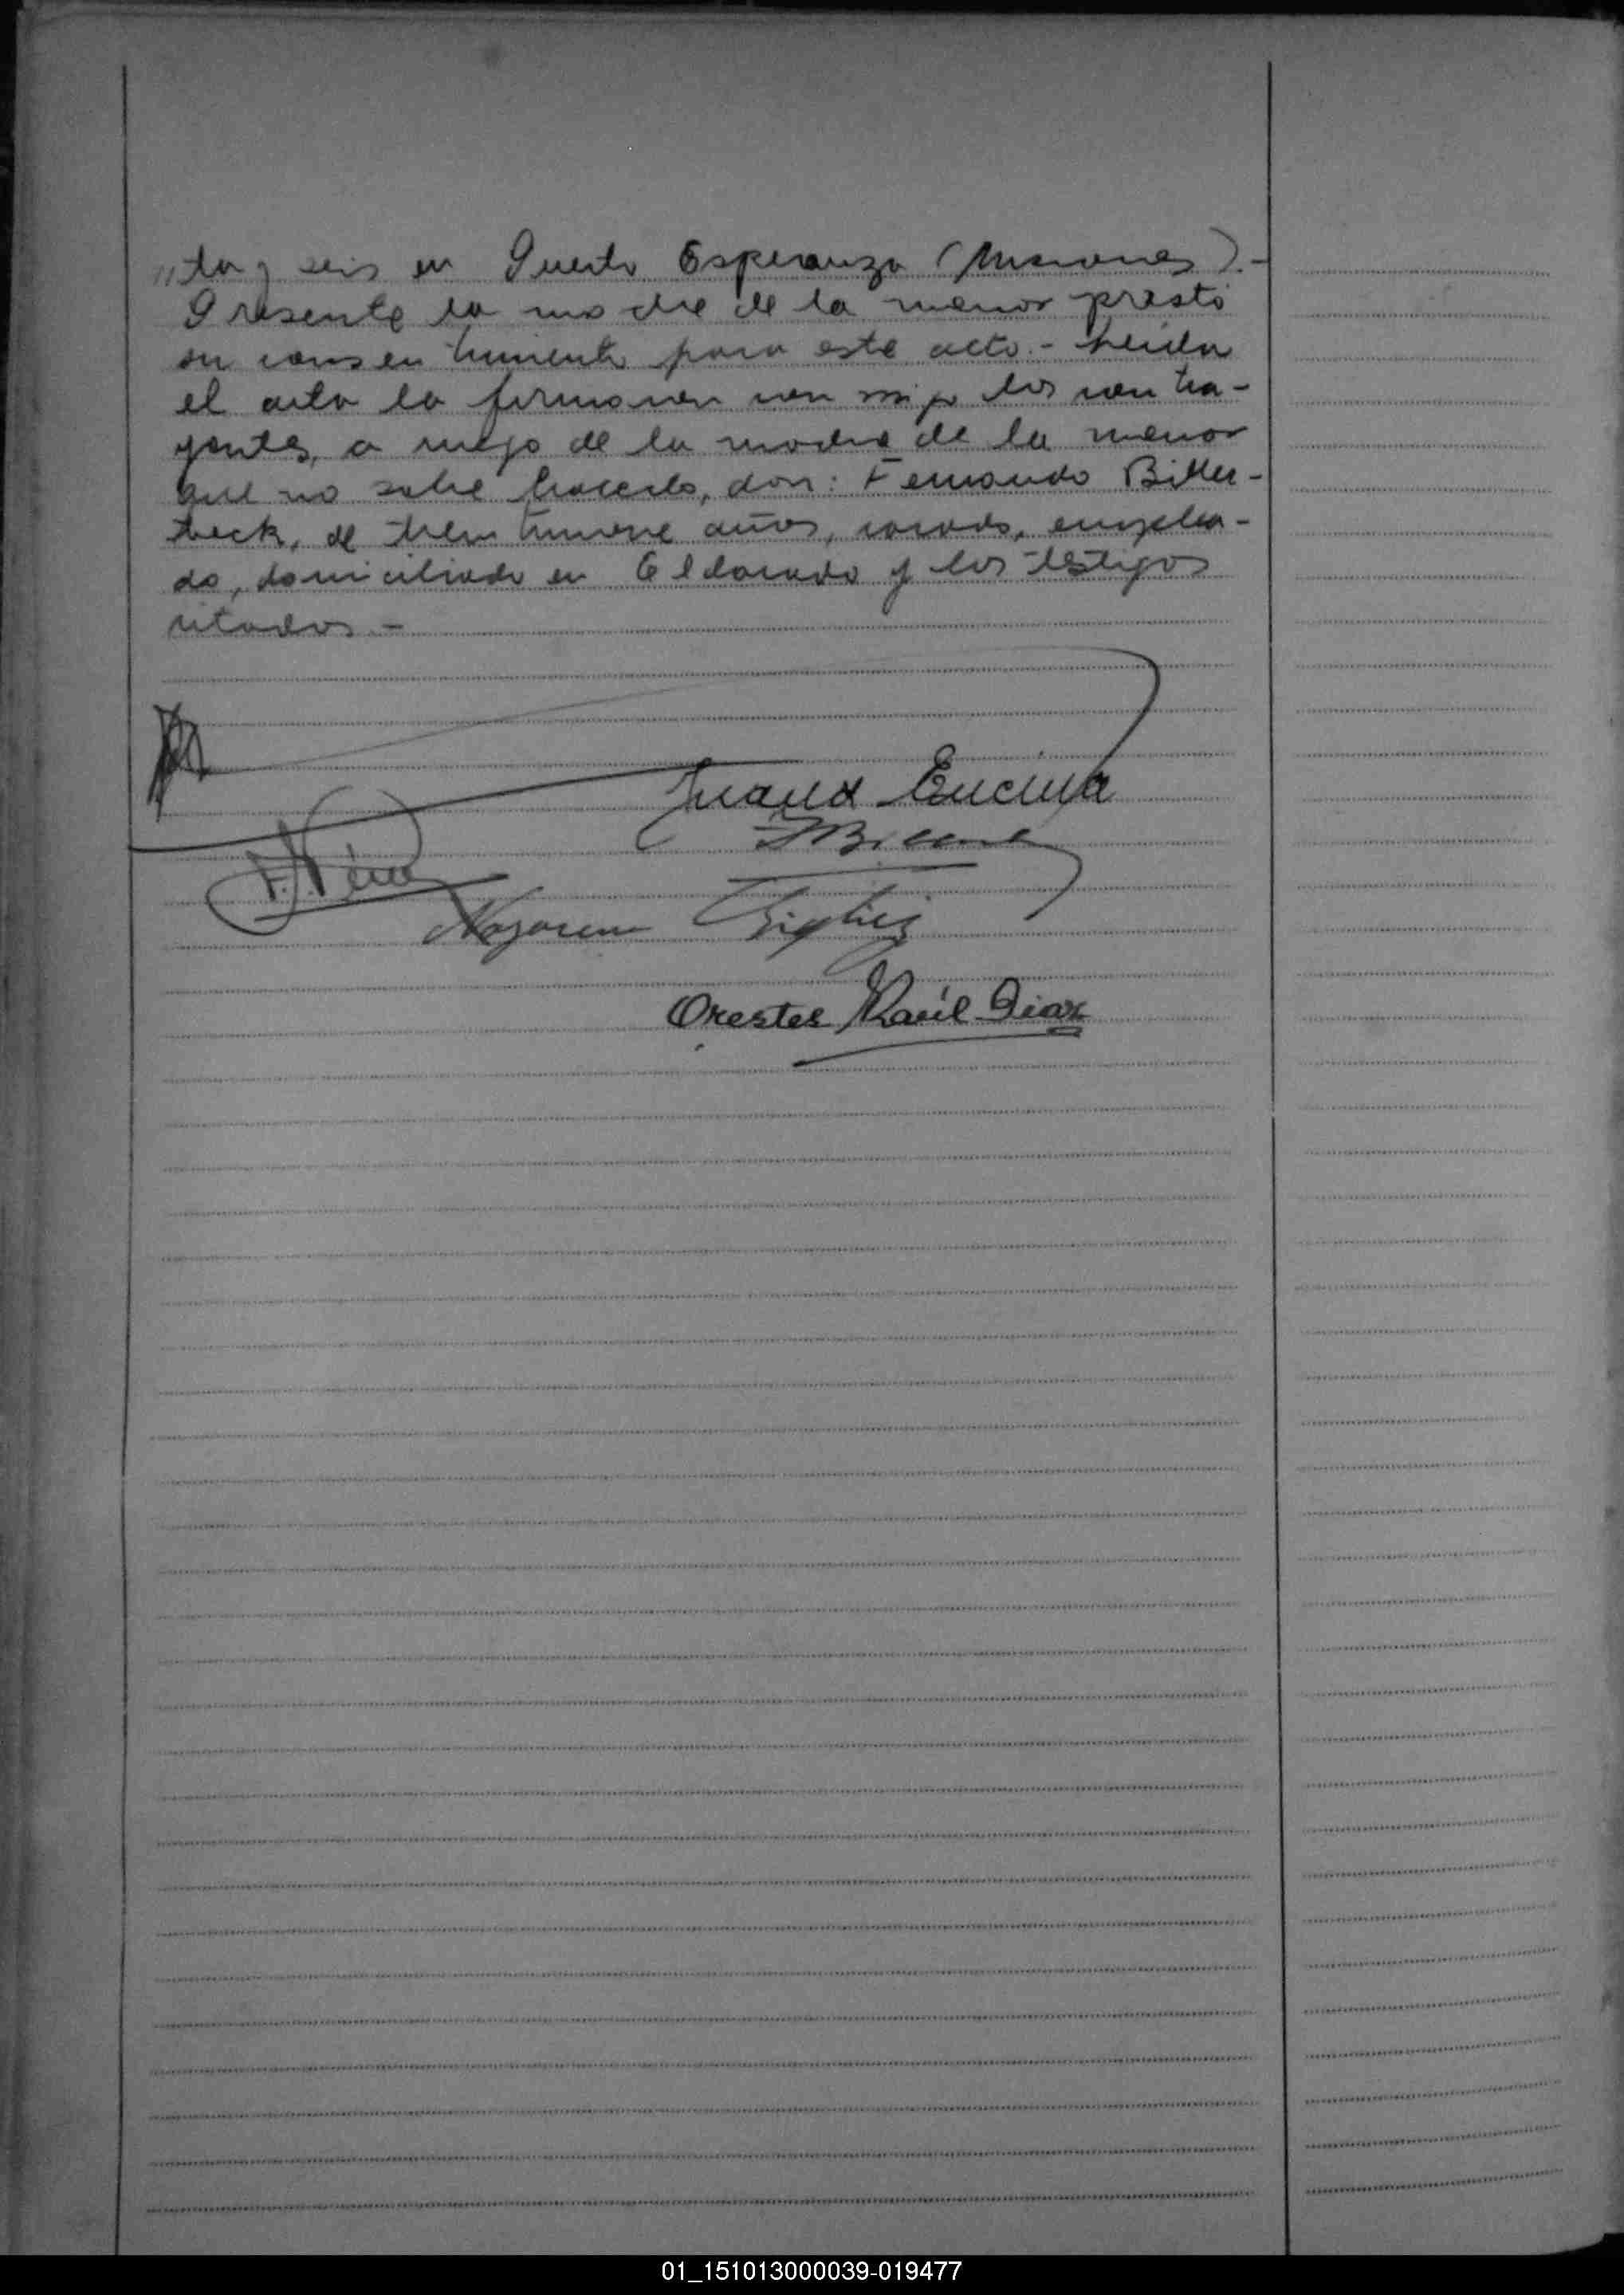 "ta y seis en Puerto Esperanza (Misiones).-
Presente la madre de la menor prestó
su consentimiento para este acto.- Leída
el acta la firmaron con migo los contra-
yentes, a ruego de la madre de la menor
que no sabe hacerlo, don: Fernando Bitter-
beck, de treintinueve años, casado, emplea-
do, domiciliado en Eldorado y los testigos
citados.-
Juana Encina
Orestes Raúl Diaz
01_151013000039-019477